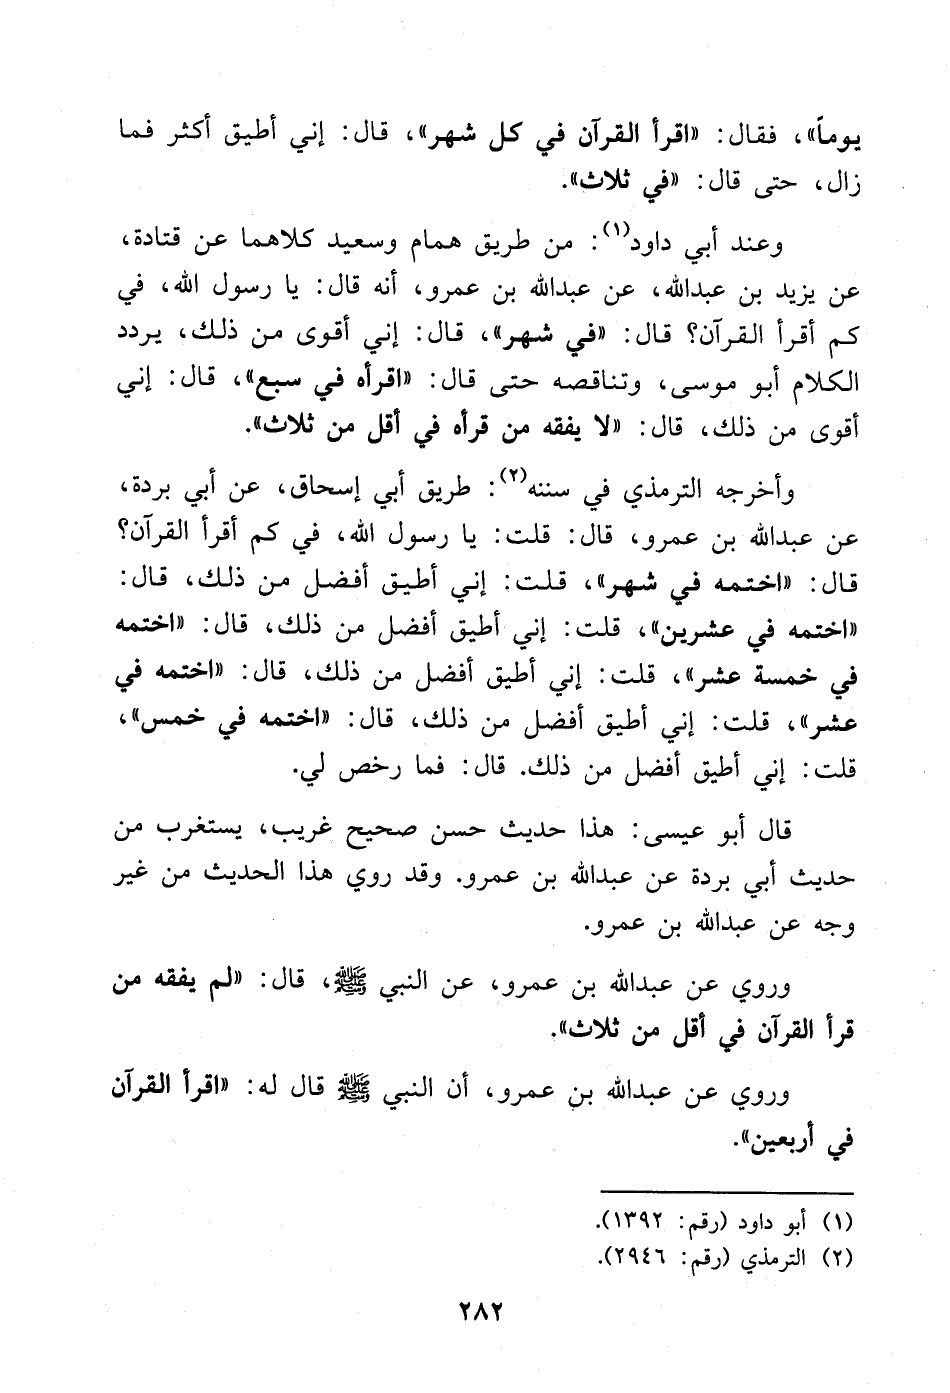 يوماً»، فقال: «اقرأ القرآن في كل شهر»، قال: إني أطيق أكثر فما
زال، حتى قال: «في ثلاث».
وعند أبي داود(١): من طريق همام وسعيد كلاهما عن قتادة،
عن يزيد بن عبدالله، عن عبدالله بن عمرو، أنه قال: يا رسول الله، في
كم أقرأ القرآن؟ قال: «في شهر»، قال: إني أقوى من ذلك، يردد
الكلام أبو موسى، وتناقصه حتى قال: «اقرأه في سبع»، قال: إني
أقوى من ذلك، قال: «لا يفقه من قرأه في أقل من ثلاث».
وأخرجه الترمذي في سننه(٢): طريق أبي إسحاق، عن أبي بردة،
عن عبدالله بن عمرو، قال: قلت: يا رسول الله، في كم أقرأ القرآن؟
قال: «اختمه في شهر»، قلت: إني أطيق أفضل من ذلك، قال:
«اختمه في عشرين»، قلت: إني أطيق أفضل من ذلك، قال: «اختمه
في خمسة عشر»، قلت: إني أطيق أفضل من ذلك، قال: «اختمه في
عشر»، قلت: إني أطيق أفضل من ذلك، قال: «اختمه في خمس»،
قلت: إني أطيق أفضل من ذلك. قال: فما رخص لي.
قال أبو عيسى: هذا حديث حسن صحيح غريب، يستغرب من
حديث أبي بردة عن عبدالله بن عمرو. وقد روي هذا الحديث من غير
وجه عن عبدالله بن عمرو.
وروي عن عبدالله بن عمرو، عن النبي ﷺ، قال: «لم يفقه من
قرأ القرآن في أقل من ثلاث».
وروي عن عبدالله بن عمرو، أن النبي ﷺ قال له: «اقرأ القرآن
في أربعين».
(١) أبو داود (رقم: ١٣٩٢).
(٢) الترمذي (رقم: ٢٩٤٦).
٢٨٢